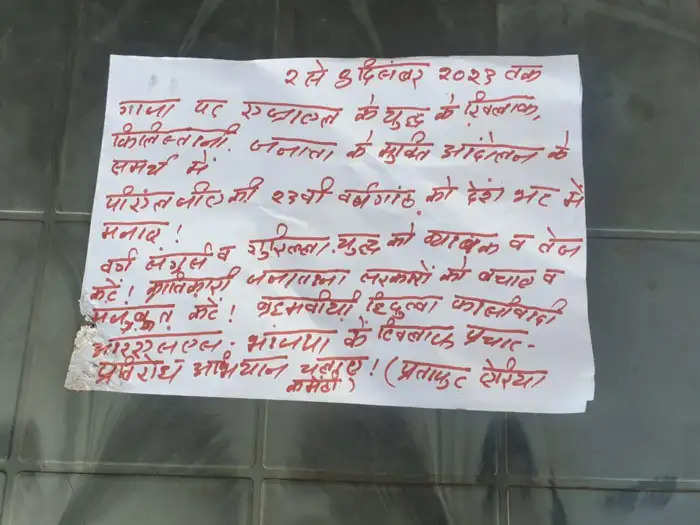 २ से ८ दिसंबर २०२३ तक
गाजा पर इजराएल के युद्ध के खिलाफ,
फिलिस्तानी जनता के मुक्ति आंदोलन के
समर्थ में
पीएलजीए की २३वी वर्षगांठ को देश भर में
मनाए!
वर्ग संघर्ष व गुरिल्ला युद्ध को व्यापक व तेज
करें! क्रांतिकारी जनताना सरकारों को बचाए व
मजबूत करें! ब्राह्मणवीय हिंदुत्वा फासीवादी
आरएसएस - भाजपा के खिलाफ प्रचार-
प्रतिरोध अभियान चलाए! (प्रतापुर एरिया
कमेटी)